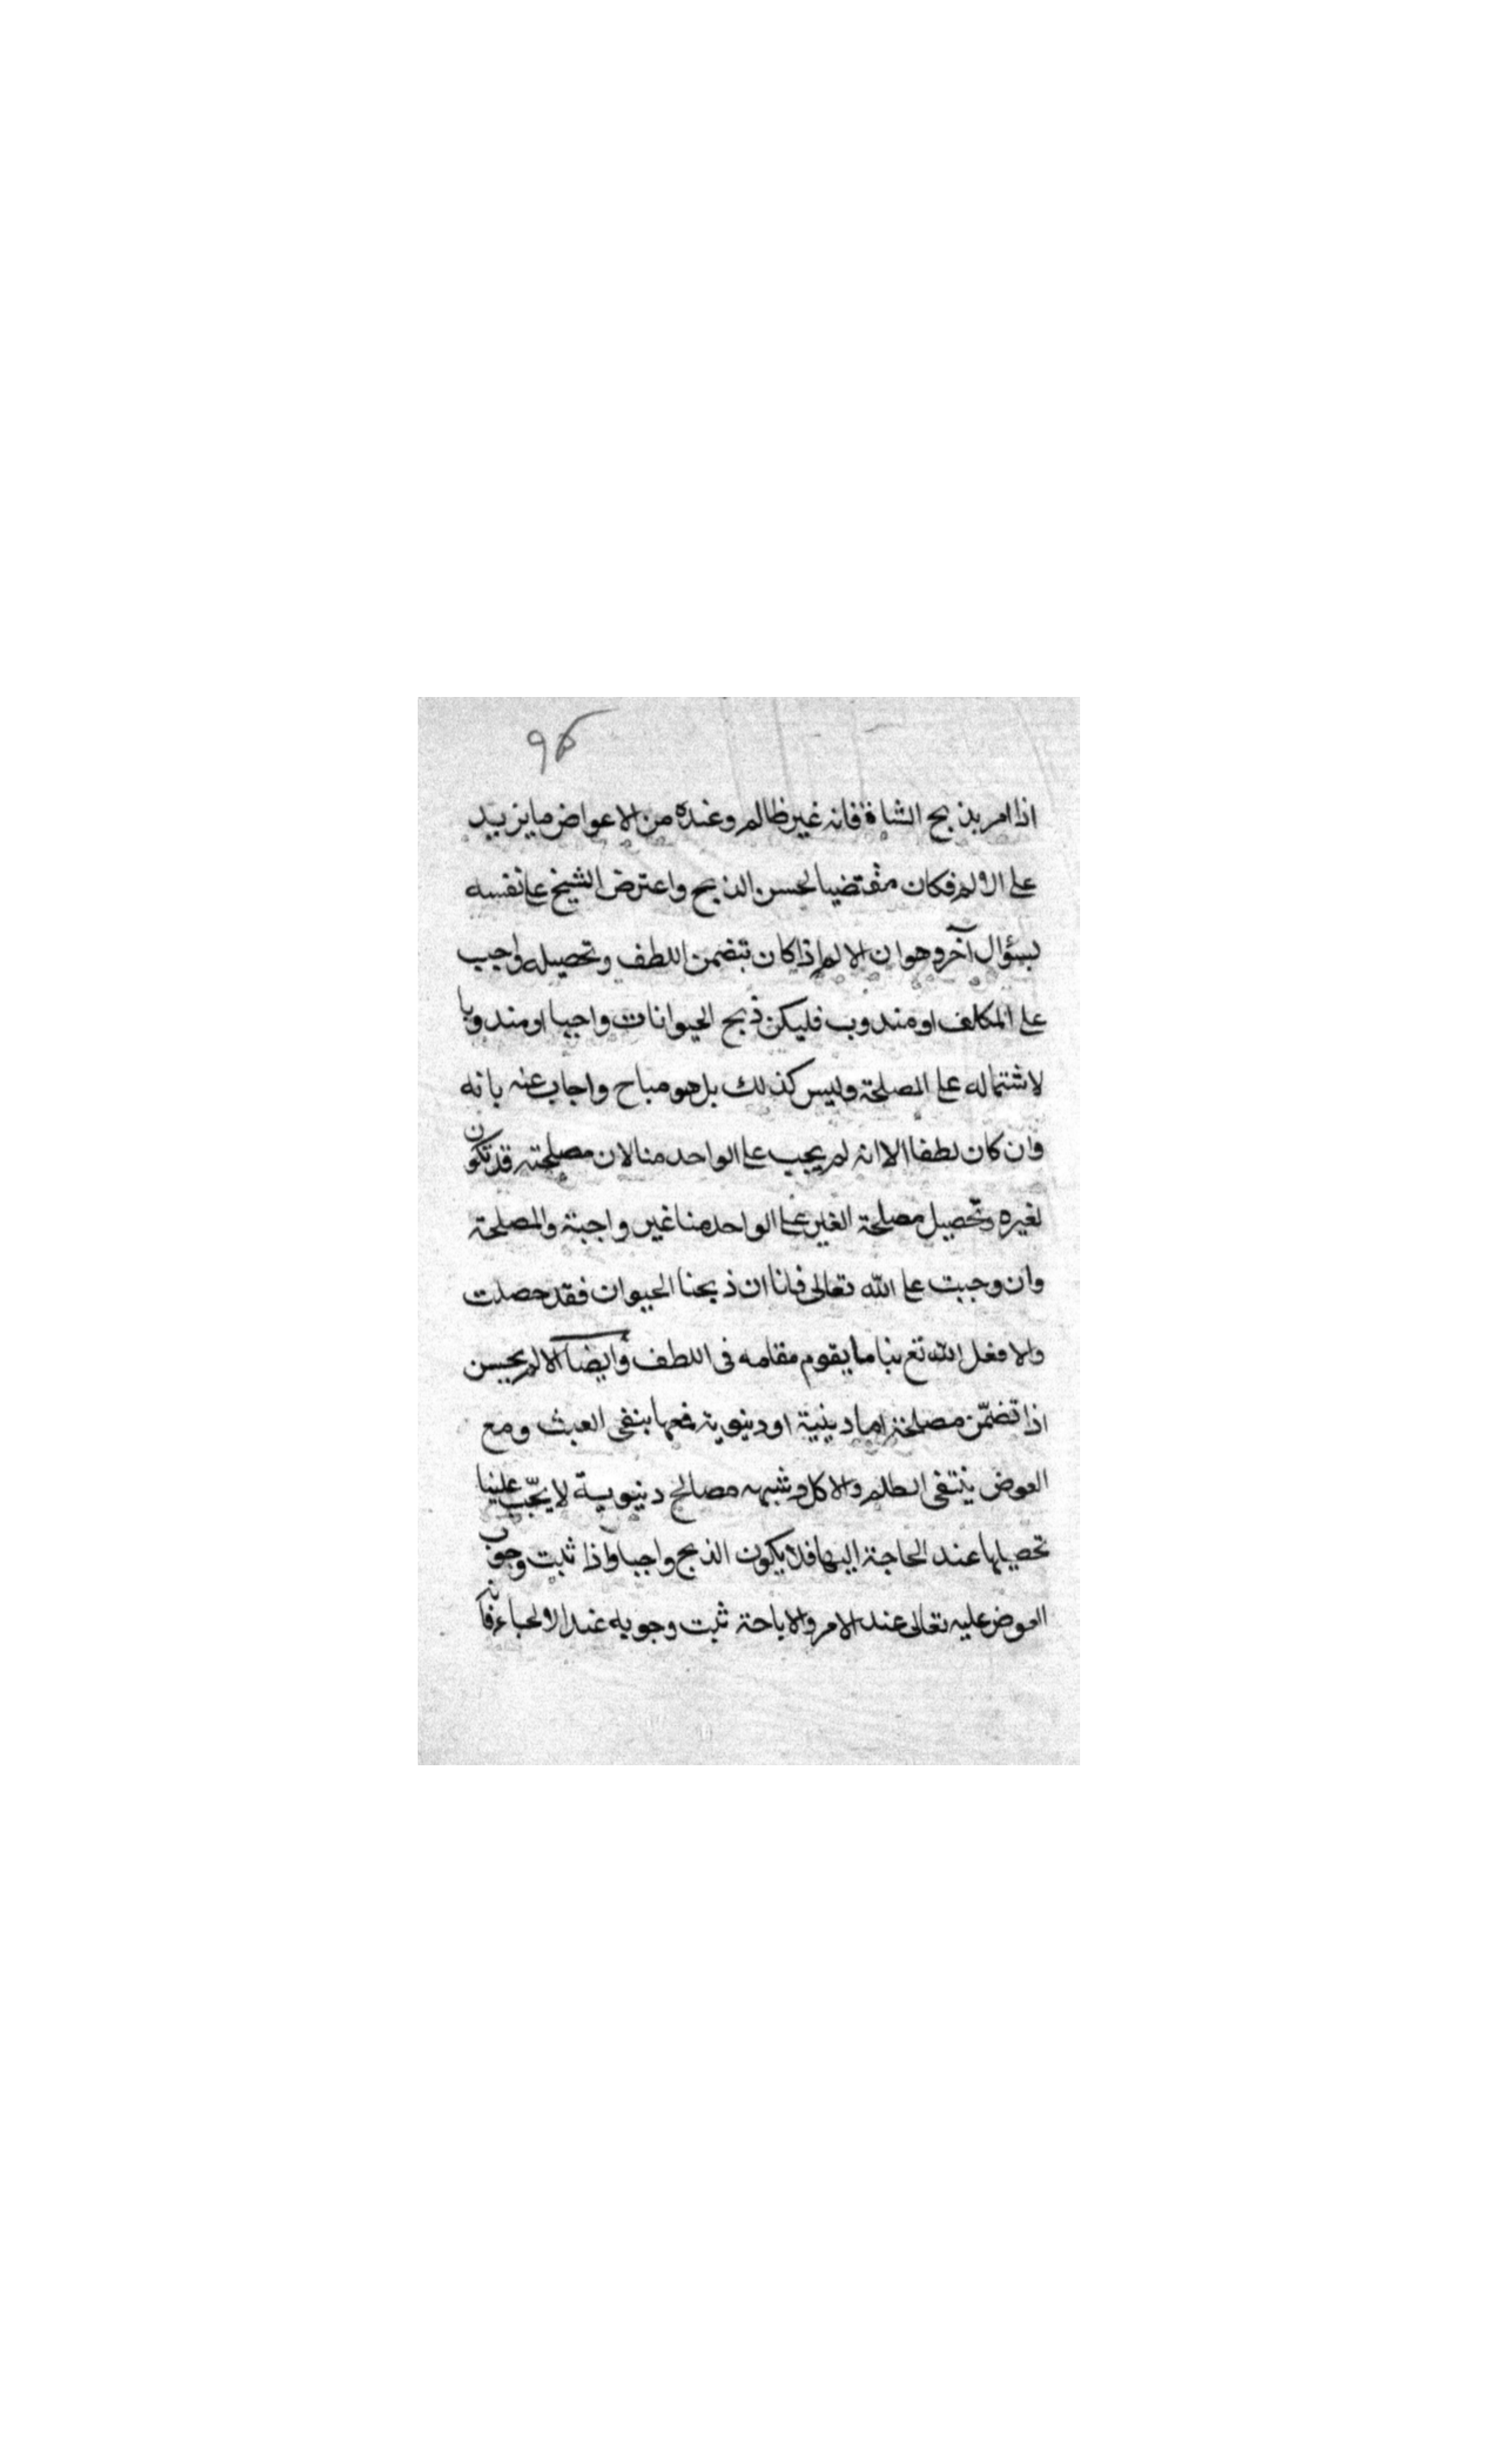 ٩۵
اذا امر بذبح الشاة فانه غير ظالم وعنده من الاعواض ما يزيد
على الالم فكان مقتضيا لحسن الذبح واعترض الشيخ على نفسه
بسؤال آخر وهو ان الالم اذا كان تتضمن اللطف وتحصيله واجب
على المكلف او مندوب فليكن ذبح الحيوانات واجبا او مندوبا
لاشتماله على المصلحة وليس كذلك بل هو مباح واجاب عنه بانه
وان كان لطفا الا انه لم يجب على الواحد منا لان مصلحته قد تكون
لغيره وتحصيل مصلحة الغير على الواحد منا غير واجبة والمصلحة
وان وجبت على الله تعالى فانا ان ذبحنا الحيوان فقد حصلت
والا فعل الله تع بنا ما يقوم مقامه فى اللطف وأيضا الالم يحسن
اذا تضمّن مصلحة اما دينية او دنيوية فمعها ينفى العبث ومع
العوض ينتفى الظلم والاكل وشبهه مصالح دنيوية لا يجب علينا
تحصيلها عند الحاجة اليها فلا يكون الذبح واجبا واذا ثبت وجوب
العوض عليه تعالى عند الامر والاباحة ثبت وجوبه عند الالجاء فانه